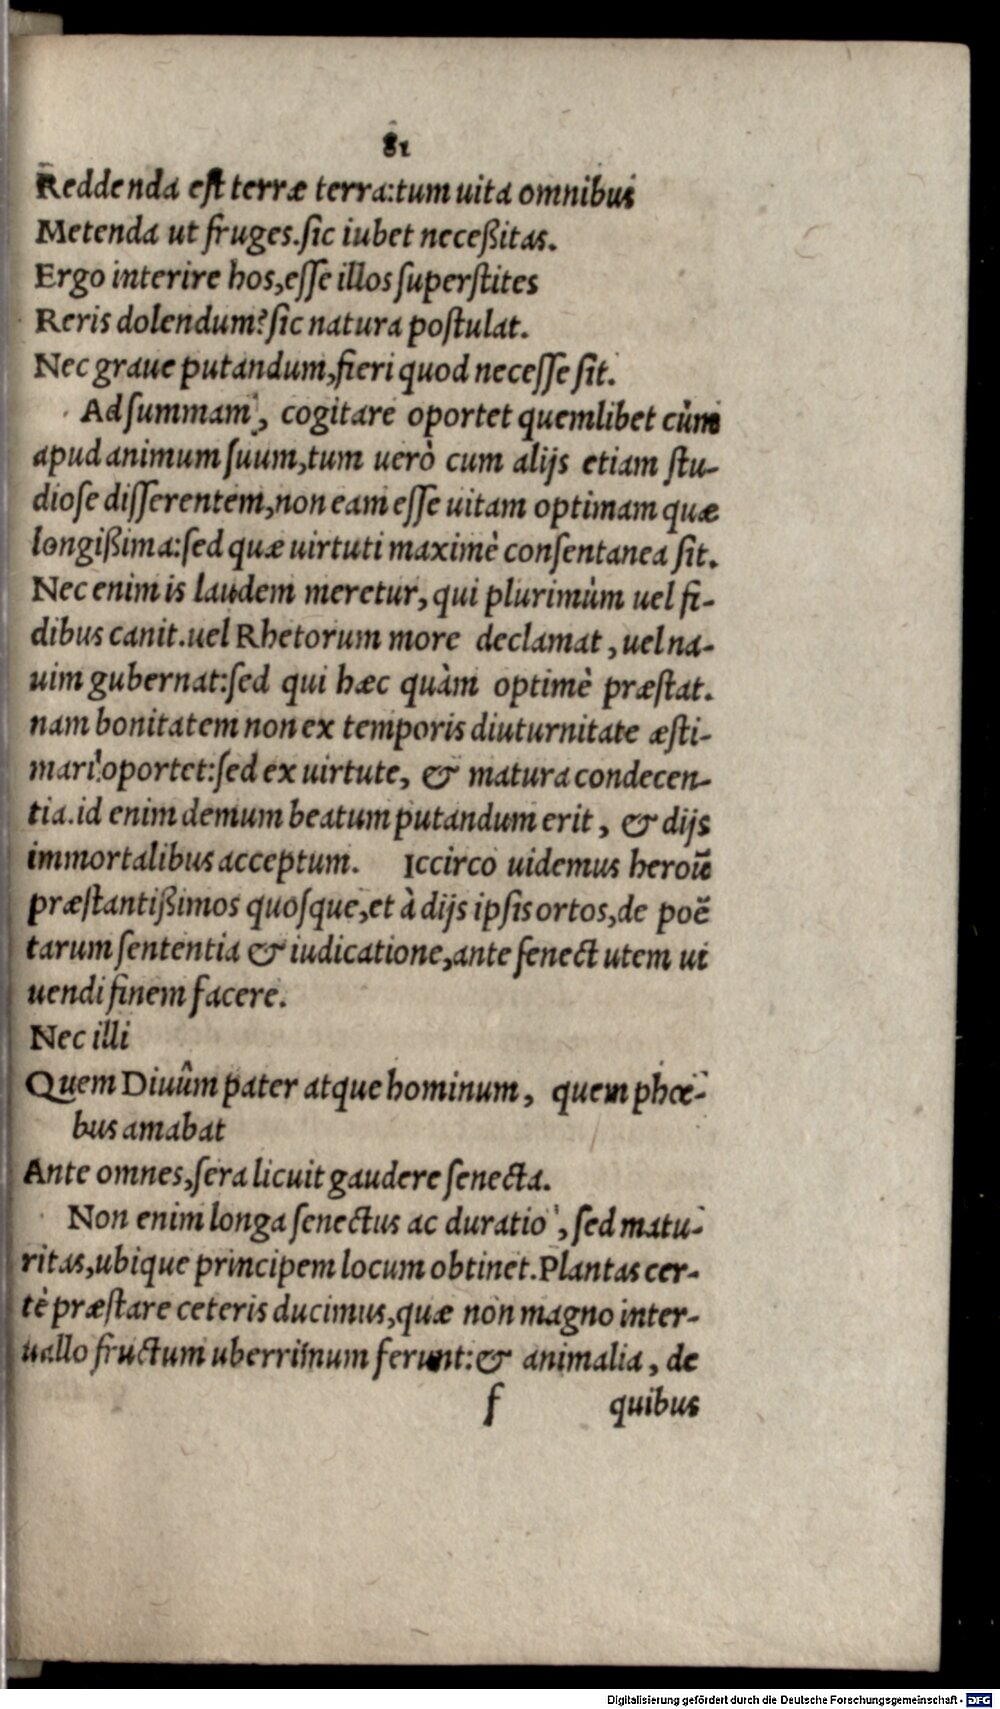 81
Reddenda eſt terræ terra:tum uita omnibus
Metenda ut fruges.ſic iubet neceßitas.
Ergo interire hos,eſſe illos ſuperſtites
Reris dolendum?ſic natura poſtulat.
Nec graue putandum,fieri quod neceſſe ſit.
Ad ſummam, cogitare oportet quemlibet cùm
apud animum ſuum,tum uerò cum alijs etiam ſtu-
dioſe diſſerentem,non eam eſſe uitam optimam quæ
longißima:ſed quæ uirtuti maximè conſentanea ſit.
Nec enim is laudem meretur, qui plurimùm uel fi-
dibus canit.uel Rhetorum more declamat, uel na-
uim gubernat:ſed qui hæc quàm optimè præſtat.
nam bonitatem non ex temporis diuturnitate æſti-
mari oportet:ſed ex uirtute, & matura condecen-
tia.id enim demum beatum putandum erit, & dijs
immortalibus acceptum. Iccirco uidemus heroū
præſtantißimos quoſque,et à dijs ipſis ortos,de poë
tarum ſententia & iudicatione,ante ſenectutem ui
uendi finem facere.
Nec illi
Quem Diuûm pater atque hominum, quem phœ-
bus amabat
Ante omnes,ſera licuit gaudere ſenecta.
Non enim longa ſenectus ac duratio, ſed matu-
ritas,ubique principem locum obtinet.Plantas cer-
tè præſtare ceteris ducimus,quæ non magno inter-
uallo fructum uberrimum ferunt:& animalia, de
f quibus
Digitalisierung gefördert durch die Deutsche Forschungsgemeinschaft - DFG